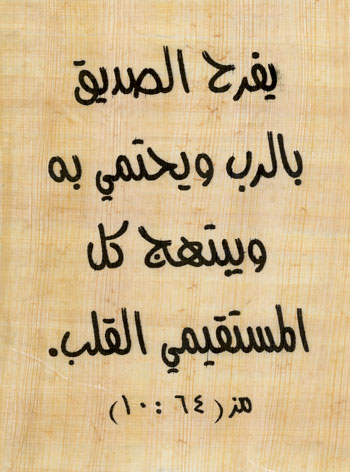 يفرح الصديق
بالرب ويحتمي به
ويبتهج كل
المستقيمي القلب.
مز (٦٤ : ١٠)